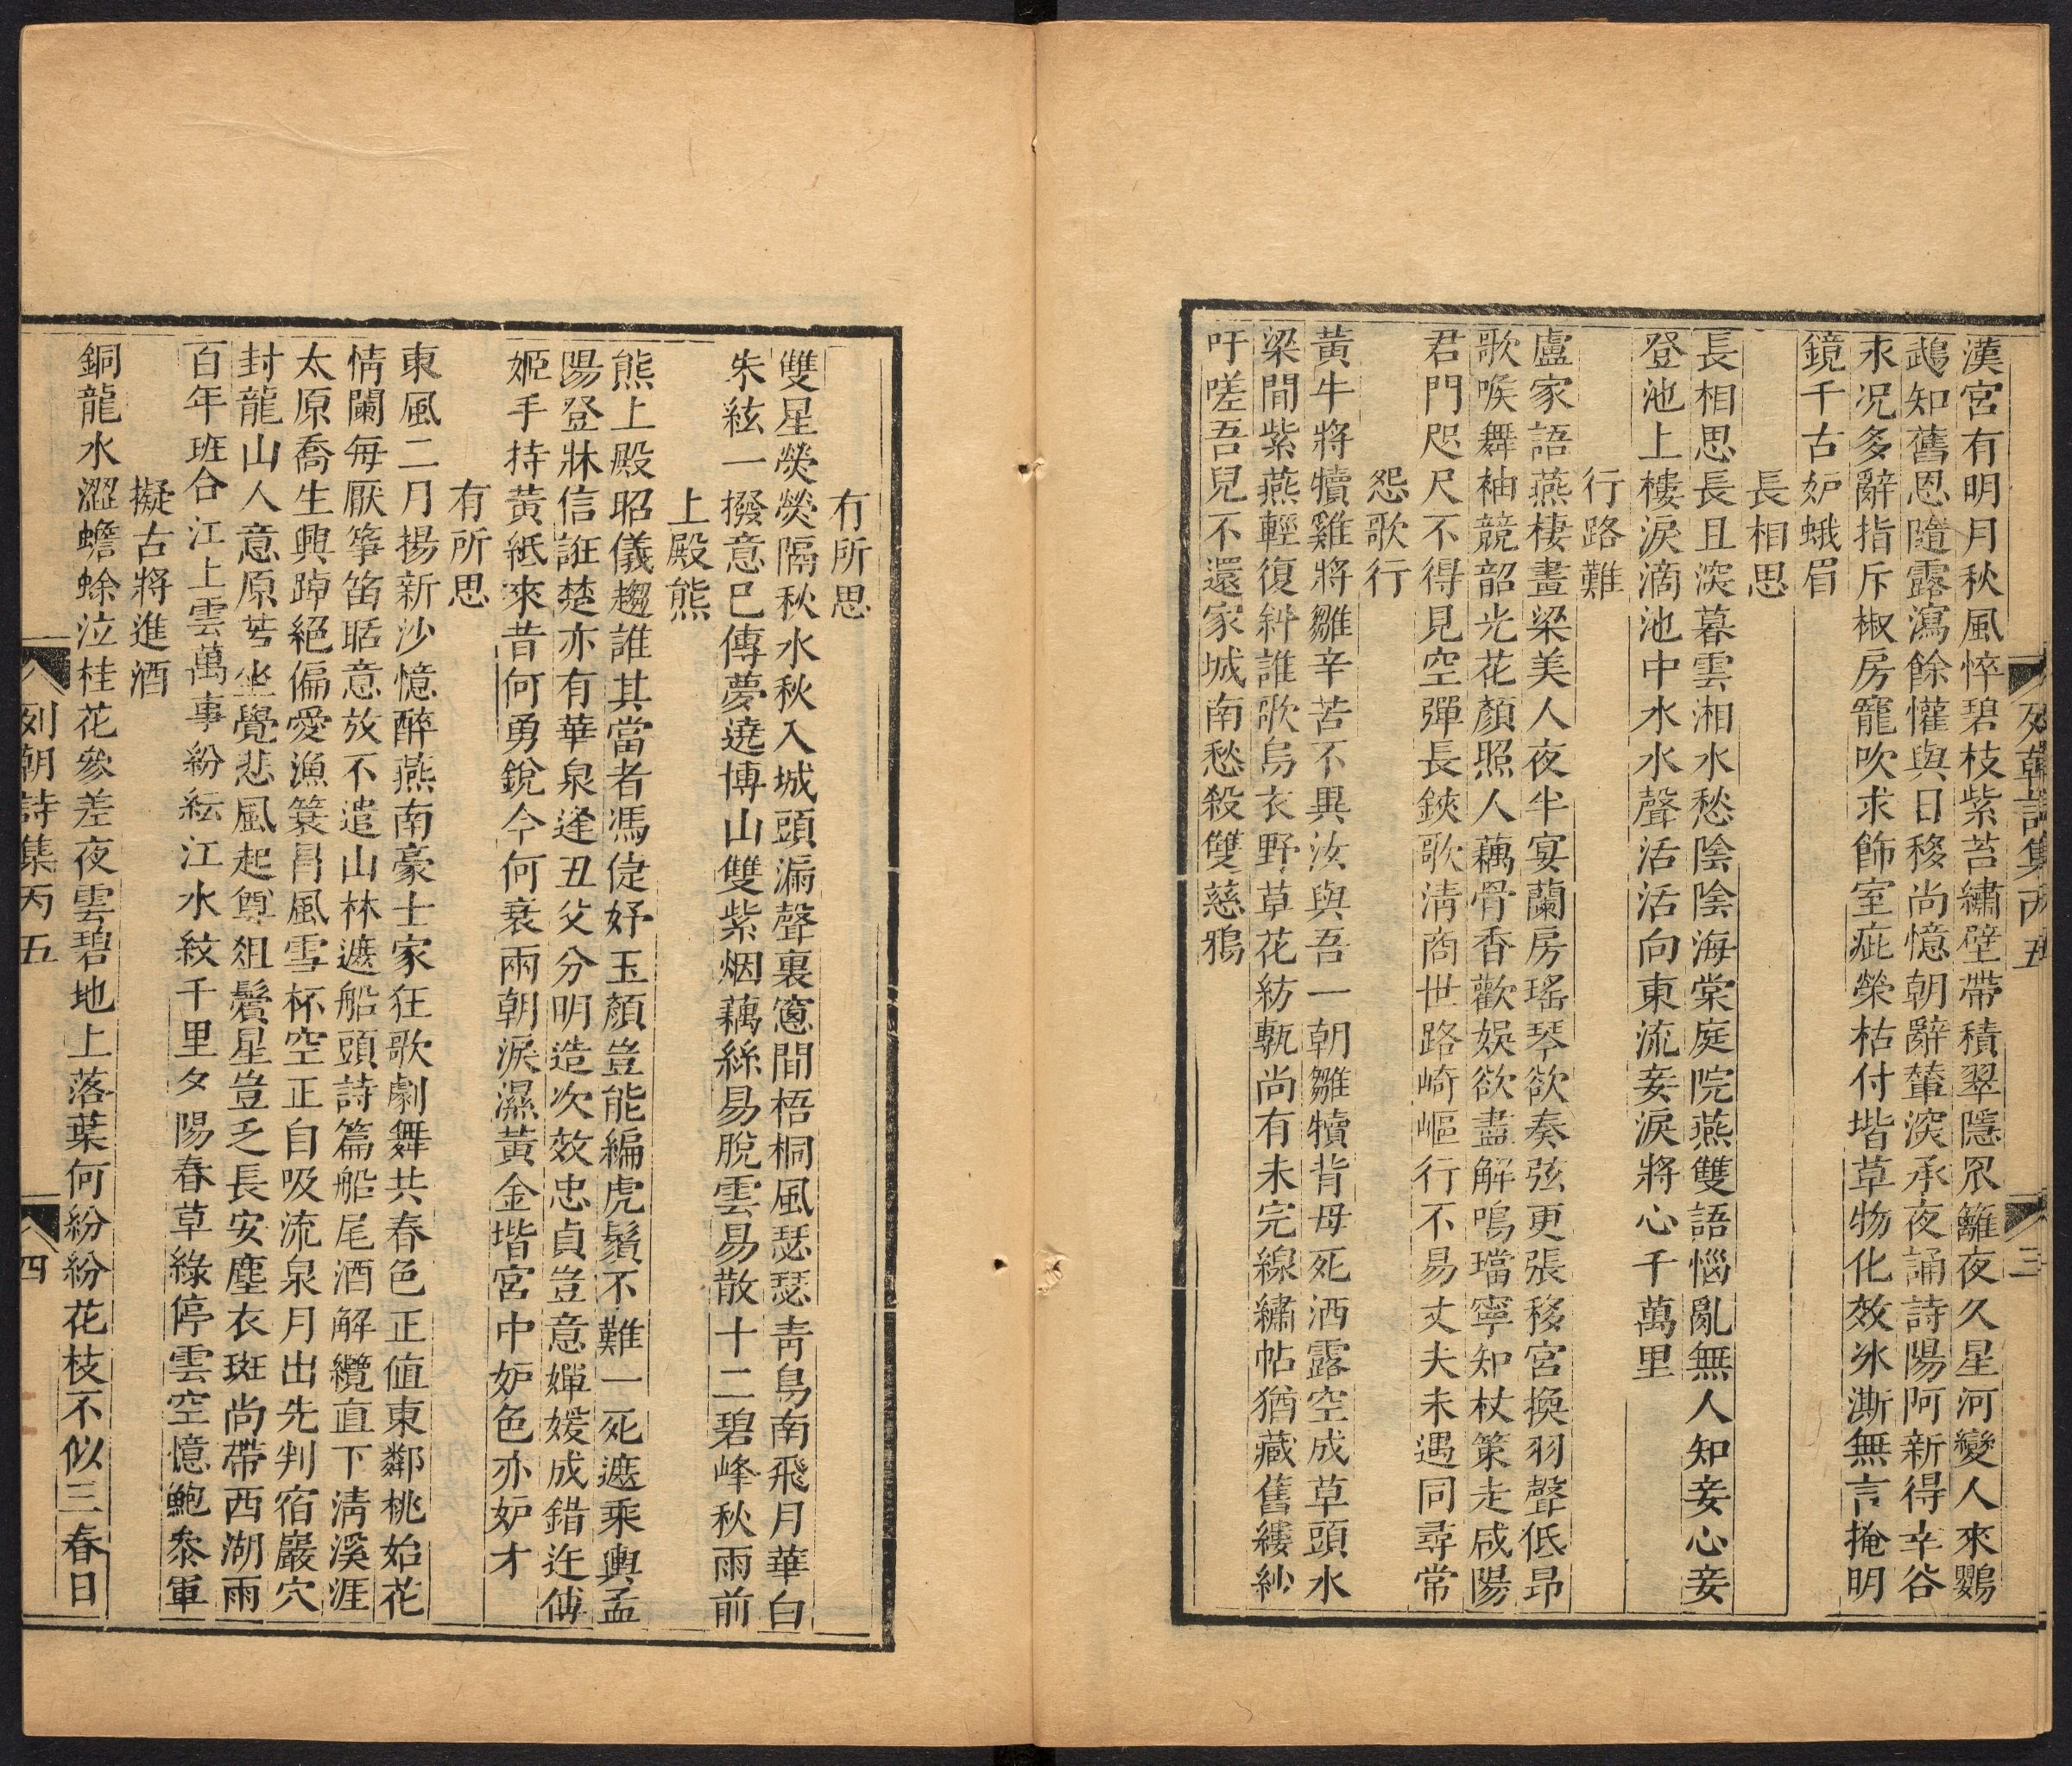 漢宮有明月秋風悴碧枝紫苔繡壁帶積翠隱罘䍦夜久星河變人來鸚
鵡知舊恩隨露瀉餘懽與日移尚憶朝辭輦深承夜誦詩陽阿新得幸谷
永况多辭指斥椒房寵吹求飾室疵榮枯付堦草物化效冰澌無言掩明
鏡千古妒蛾眉
長相思
長相思長且深暮雲湘水愁陰陰海棠庭院燕雙語惱亂無人知妾心妾
登池上樓淚滴池中水水聲活活向東流妾淚將心千萬里
行路難
盧家語燕棲畫梁美人夜半宴蘭房瑤琴欲奏弦更張移宮換羽聲低昂
歌喉舞袖競韶光花顏照人藕骨香歡娛欲盡解鳴璫寧知杖策走咸陽
君門咫尺不得見空彈長鋏歌淸商世路崎嶇行不易丈夫未遇同尋常
怨歌行
黃牛將犢雞將雛辛苦不異汝與吾一朝雛犢背母死洒露空成草頭水
梁間紫燕輕復斜誰歌烏衣野草花紡甎尚有未完線繡帖猶藏舊縷紗
吁嗟吾兒不還家城南愁殺雙慈鴉
列朝詩集丙五
三
有所思
雙星熒熒隔秋水秋入城頭漏聲裏窻間梧桐風瑟瑟靑鳥南飛月華白
朱絃一撥意已傳夢遶博山雙紫烟藕絲易脫雲易散十二碧峰秋雨前
上殿熊
熊上殿昭儀趨誰其當者馮倢妤玉顏豈能編虎鬚不難一死遮乘輿孟
陽登牀信誑楚亦有華泉逢丑父分明造次效忠貞豈意嬋媛成錯迕傅
姬手持黃紙來昔何勇銳今何衰兩朝淚濕黃金堦宮中妒色亦妒才
有所思
東風二月揚新沙憶醉燕南豪士家狂歌劇舞共春色正値東鄰桃始花
情闌每厭箏笛聒意放不遣山林遮船頭詩篇船尾酒解纜直下淸溪涯
太原喬生興踔絕偏愛漁簑冒風雪杯空正自吸流泉月出先判宿巖穴
封龍山人意原芎坐覺悲風起尊俎鬢星豈乏長安塵衣斑尚帶西湖雨
百年班合江上雲萬事紛紜江水紋千里夕陽春草綠停雲空憶鮑叅軍
擬古將進酒
銅龍水澀蟾蜍泣桂花參差夜雲碧地上落葉何紛紛花枝不似三春日
列朝詩集丙五
四